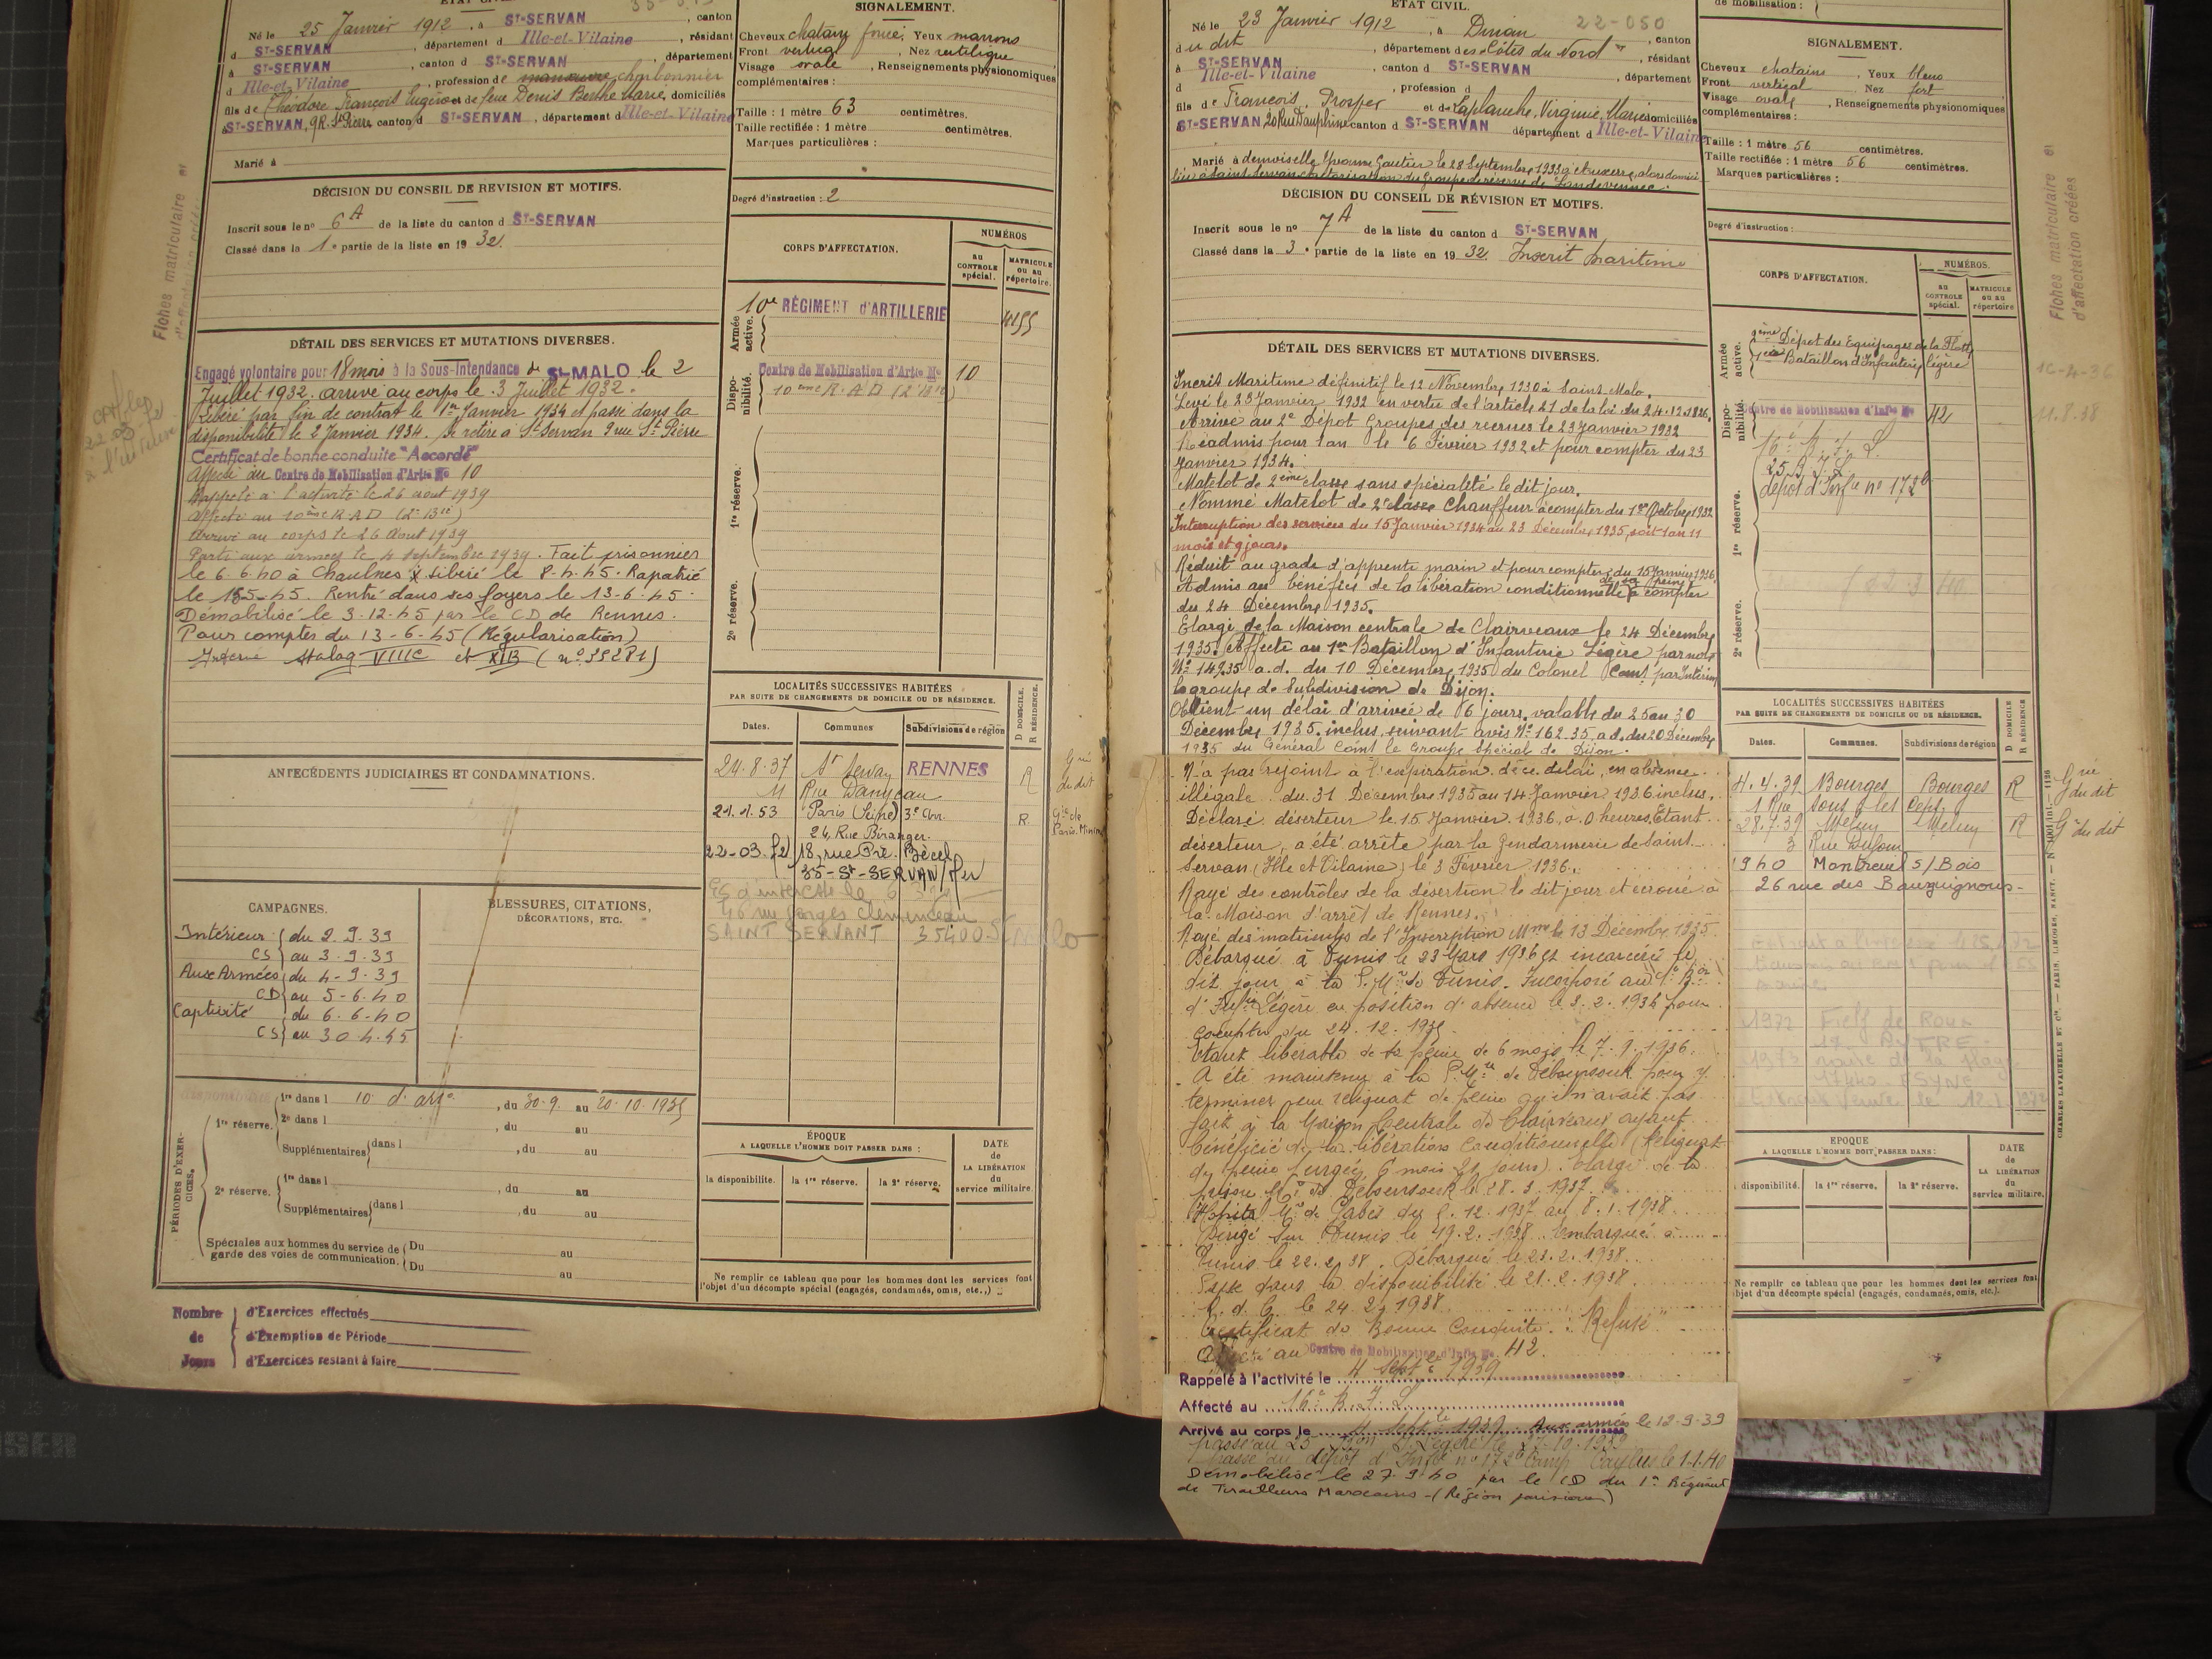 ÉTAT CIVIL.
Né le 25 Janvier 1912, à ST-SERVAN, canton
d ST-SERVAN, département d Ille-et-Vilaine, résidant
à ST-SERVAN, canton d ST-SERVAN, département
d Ille-et-Vilaine, profession de manœuvre charbonnier
fils de Théodore François Eugène et de feue Denis Berthe Marie, domiciliés
à ST-SERVAN, 9 R. St Pierre canton d ST-SERVAN, département d Ille-et-Vilaine
Marié à
DÉCISION DU CONSEIL DE REVISION ET MOTIFS.
Inscrit sous le no 6 A de la liste du canton d ST-SERVAN
Classé dans la 1e partie de la liste en 1932.
DÉTAIL DES SERVICES ET MUTATIONS DIVERSES.
Engagé volontaire pour 18 mois à la Sous-Intendance de St-MALO le 2
Juillet 1932. arrivé au corps le 3 Juillet 1932.
Libéré par fin de contrat le 1er Janvier 1934 et passé dans la
disponibilité le 2 Janvier 1934. Se retire à St Servan 9 rue St Pierre
Certificat de bonne conduite "Accordé"
Affecté au Centre de Mobilisation d'Artie No 10
Rappelé à l'activité le 26 aout 1939
Affecté au 10ème R.A.D (2e Bie)
Arrivé au corps le 26 Aout 1939
Parti aux armées le 4 septembre 1939. Fait prisonnier
le 6.6.40 à Chaulnes Libéré le 8-4-45. Rapatrié
le 15-45. Rentré dans ses foyers le 13-6-45-
Démobilisé le 3-12-45 par le CD de Rennes.
Pour compter du 13-6-45 (Régularisation)
Interné Stalag VIIIC et XIB (no 35281)
ANTÉCÉDENTS JUDICIAIRES ET CONDAMNATIONS.
CAMPAGNES.
Intérieur du 2.9.39
CS au 3.9.39
Aux Armées du 4-9-39
CD au 5-6-40
Captivité du 6-6-40
CS au 30-4-45
BLESSURES, CITATIONS,
DÉCORATIONS, ETC.
PÉRIODES D'EXERCICES.
disponibilité
1re réserve.
1re dans l 10 d'artie, du 30.9 au 20.10.1935
2e dans l , du au
Supplémentaires dans l , du au
2e réserve.
1re dans l , du au
Supplémentaires dans l , du au
Spéciales aux hommes du service de
garde des voies de communication.
Du au
Du au
Nombre
de
Jours
d'Exercices effectués
d'Exemption de Période
d'Exercices restant à faire
Fiches matriculaire et
SIGNALEMENT.
Cheveux chatain foncé. Yeux marrons
Front vertical, Nez rectiligne
Visage ovale, Renseignements physionomiques
complémentaires :
Taille : 1 mètre 63 centimètres.
Taille rectifiée : 1 mètre centimètres.
Marques particulières :
Degré d'instruction : 2
CORPS D'AFFECTATION.
NUMÉROS
au CONTROLE spécial.
MATRICULE ou au répertoire.
Armée active.
10e RÉGIMENT d'ARTILLERIE
Disponibilité.
Centre de Mobilisation d'Artie No 10
10ème R.A.D
1re réserve.
2e réserve.
LOCALITÉS SUCCESSIVES HABITÉES
PAR SUITE DE CHANGEMENTS DE DOMICILE OU DE RÉSIDENCE.
D DOMICILE.
R RÉSIDENCE.
Dates. Communes Subdivisions de région
24.8.37 St Servan RENNES R
11 Rue Danycan
21.1.53 Paris (Seine) 3e Arr. R
24, Rue Béranger.
22-03. 18, rue Pre. Bécel
35-St-SERVAN/Mer
46 rue Georges Clemenceau
SAINT SERVANT 35400
ÉPOQUE
A LAQUELLE L'HOMME DOIT PASSER DANS :
DATE de LA LIBÉRATION du service militaire.
la disponibilité. la 1re réserve. la 2e réserve.
Ne remplir ce tableau que pour les hommes dont les services font
l'objet d'un décompte spécial (engagés, condamnés, omis, etc.,)
ÉTAT CIVIL. 22-050
Né le 23 Janvier 1912, à Dinan, canton
du dit, département des Côtes du Nord, résidant
à ST-SERVAN, canton d ST-SERVAN, département
d Ille-et-Vilaine, profession d
fils de François, Prosper et de Laplanche, Virginie, Marie domiciliés
ST-SERVAN 20 Rue Dauphine canton d ST-SERVAN département d Ille-et-Vilaine
Marié à demoiselle Yvonne Gautier le 28 Septembre 1933 à Auxerre, alors domici
lié à Saint Servan autorisation du Groupe de réserve de Landevennec.
DÉCISION DU CONSEIL DE RÉVISION ET MOTIFS.
Inscrit sous le no 7 A de la liste du canton d ST-SERVAN
Classé dans la 3e partie de la liste en 1932. Inscrit Maritime
DÉTAIL DES SERVICES ET MUTATIONS DIVERSES.
Inscrit Maritime définitif le 12 Novembre 1930 à Saint Malo.
Levé le 23 Janvier 1932 en vertu de l'article 21 de la loi du 24.12.1896.
Arrivé au 2e Dépot Groupes des recrues le 23 Janvier 1932
Réadmis pour 1 an le 6 Février 1932 et pour compter du 23
Janvier 1934.
Matelot de 2ème classe sans spécialité le dit jour.
Nommé Matelot de 2e classe Chauffeur à compter du 1er Octobre 1932
Interruption des services du 15 Janvier 1934 au 23 Décembre 1935, soit 1 an 11
mois et 9 jours.
Réduit au grade d'apprenti marin et pour compter du 15 Janvier 1936.
Admis au bénéfice de la libération conditionnelle de sa peine à compter
du 24 Décembre 1935.
Elargi de la Maison centrale de Clairveaux le 24 Décembre
1935. Affecté au 1er Bataillon d'Infanterie Légère par note
No 14935 a.d. du 10 Décembre 1935 du Colonel Comt par Intérim
le groupe de Subdivision de Dijon.
Obtient un délai d'arrivée de 6 jours, valable du 25 au 30
Décembre 1935. inclus, suivant avis No 162.35, a.d. du 20 Décembre
1935 du Général Comt le Groupe Spécial de Dijon.
N'a pas rejoint à l'expiration de ce délai, en absence
illégale du 31 Décembre 1935 au 14 Janvier 1936 inclus.
Déclaré déserteur le 15 Janvier 1936, à 0 heures. Etant
déserteur, a été arrêté par la Gendarmerie de Saint
Servan (Ille et Vilaine) le 3 Février 1936.
Rayé des contrôles de la désertion le dit jour et écroué à
la Maison d'arrêt de Rennes.
Rayé des matricules de l'Inscription Mme le 13 Décembre 1935.
Débarqué à Tunis le 23 Mars 1936 et incarcéré le
dit jour à la P. Mre de Tunis. Incorporé au 1er Bon
d'Infie Légère en position d'absence le 3.2.1936 pour
compter du 24.12.1935
Etant libérable de sa peine de 6 mois le 7.9.1936.
A été maintenu à la P. Mre de Téboursouk pour y
terminer son reliquat de peine qu'il n'avait pas
fait à la Maison Centrale de Clairveaux ayant
bénéficié de la libération conditionnelle (Reliquat
de peine purgée, 6 mois 21 jours). Elargi de la
prison Mre de Téboursouk le 28.3.1937
Hopital Mre de Gabès du 12.1937 au 8.1.1938.
Dirigé sur Tunis le 19.2.1938 Embarqué à
Tunis le 22.2.38. Débarqué le 23.2.1938.
Passé dans la disponibilité le 21.2.1938.
R. d. C. le 24.2.1938.
Certificat de Bonne Conduite : "Refusé"
Affecté au Centre de Mobilisation d'Infie No 42.
Rappelé à l'activité le 4 septbre 1939
Affecté au 16e B.I.L.
Arrivé au corps le 4 septbre 1939. Aux armées le 12-9-39
passé au dépot d'Infie no 172 Camp Caylus le 1-1-40
Démobilisé le 27.9.40 par le CD du 1er Régiment
de Tirailleurs Marocains - (Région parisienne)
de mobilisation :
SIGNALEMENT.
Cheveux chatains. Yeux bleus
Front vertical. Nez fort
Visage ovale, Renseignements physionomiques
complémentaires :
Taille : 1 mètre 56 centimètres.
Taille rectifiée : 1 mètre 56 centimètres.
Marques particulières :
Degré d'instruction :
CORPS D'AFFECTATION.
NUMÉROS.
au CONTROLE spécial.
MATRICULE ou au répertoire
Armée active.
2ème Dépot des Equipages de la Flotte
1er Bataillon d'Infanterie légère
Disponibilité.
Centre de Mobilisation d'Infie No 42
16e B.I.L.
dépot d'Infie no 172
1re réserve.
2e réserve.
16-4-36
11.8.38
Fiches matriculaire et
d'affectation créées
LOCALITÉS SUCCESSIVES HABITÉES
PAR SUITE DE CHANGEMENTS DE DOMICILE OU DE RÉSIDENCE.
D DOMICILE
R RÉSIDENCE
Dates. Communes. Subdivisions de région
4.4.39 Bourges Bourges R Gie du dit
1 Rue sous les Ceps.
28.7.39 Melun Melun R Gie du dit
3 Rue Dajour
1940 Montreuil s/Bois
26 rue des Bourguignons-
1972 Fief de Roux
EPOQUE
A LAQUELLE L'HOMME DOIT PASSER DANS :
DATE de LA LIBÉRATION du service militaire.
disponibilité. la 1re réserve. la 2e réserve.
Ne remplir ce tableau que pour les hommes dont les services font
objet d'un décompte spécial (engagés, condamnés, omis, etc.).
CHARLES LAVAUZELLE ET Cie. — PARIS, LIMOGES, NANCY.